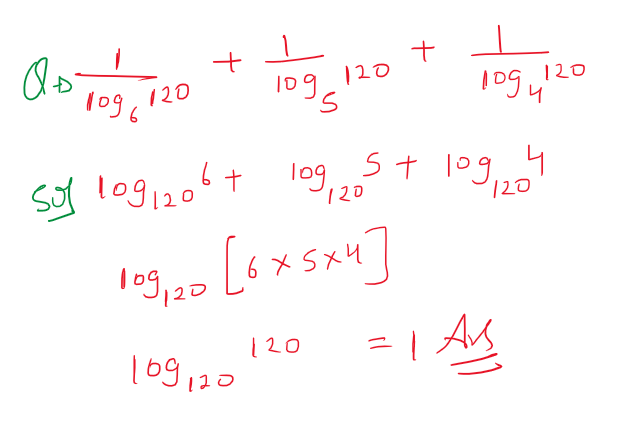 Q→ 1/log₆ 120 + 1/log₅ 120 + 1/log₄ 120
Sol log₁₂₀ 6 + log₁₂₀ 5 + log₁₂₀ 4
log₁₂₀ [6 × 5 × 4]
log₁₂₀ 120 = 1 Ans